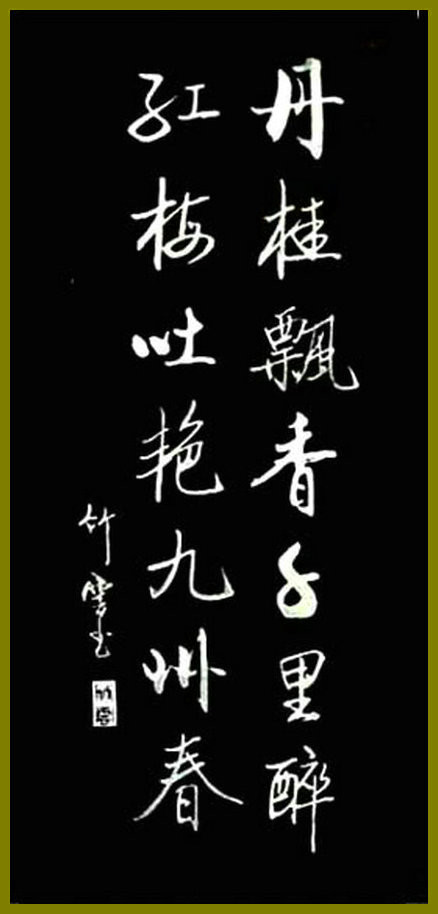 丹桂飘香千里醉
红梅吐艳九州春
竹雲书
竹雲